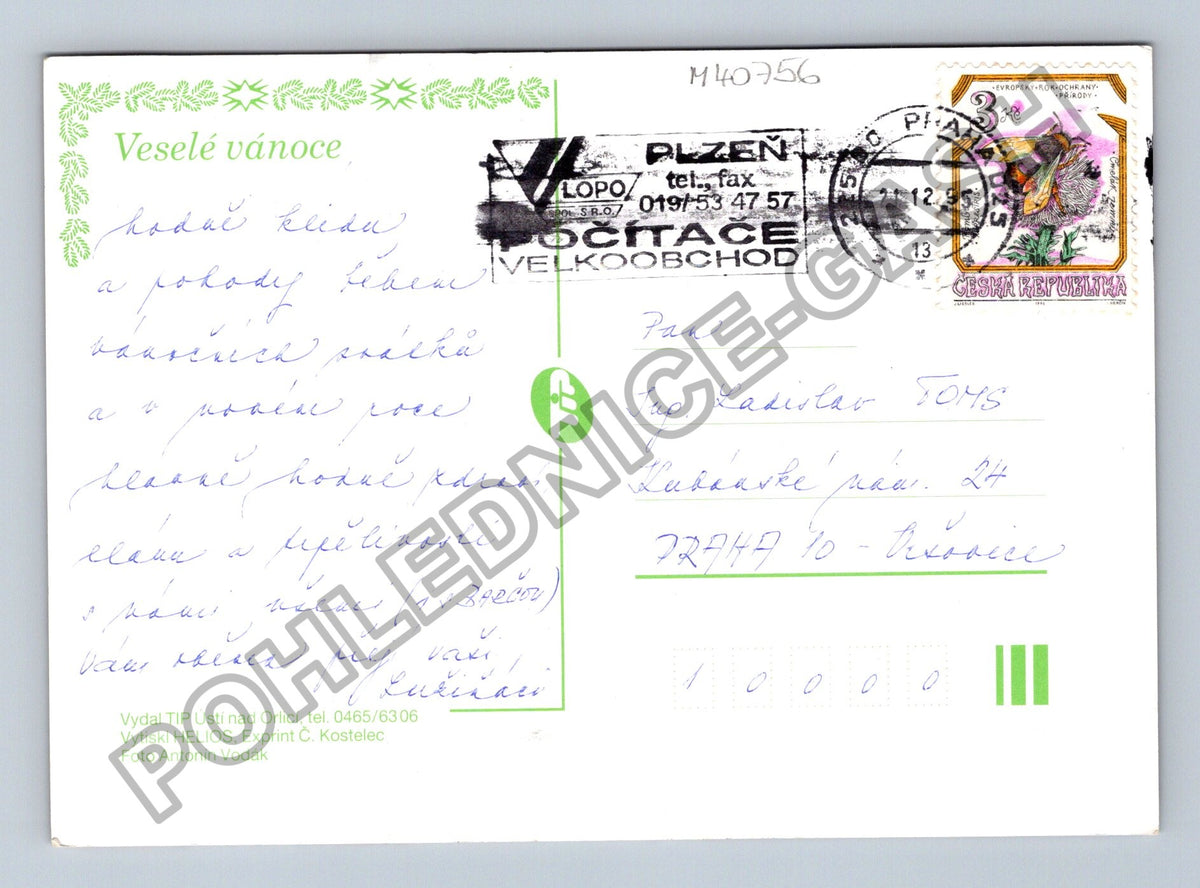 M40756
Veselé vánoce
hodně klidu
a pohody během
vánočních svátků
a v novém roce
hlavně hodně zdraví
elánu a trpělivosti
s námi všemi (i s BARČOU)
Vám všem přejí vaši
PLZEŇ
LOPO
SPOL. S R.O.
tel., fax
019/ 53 47 57
POČÍTAČE
VELKOOBCHOD
PRAHA 025
21.12.95
13
EVROPSKÝ ROK OCHRANY
PŘÍRODY
3 Kč
ČESKÁ REPUBLIKA
Pan
Ing. Ladislav TOMS
Kubánské nám. 24
PRAHA 10 - Vršovice
1 0 0 0 0
Vydal TIP Ústí nad Orlicí, tel. 0465/6306
Vytiskl HELIOS, Exprint Č. Kostelec
Foto Antonín Vodák
POHLEDNICE-GASH